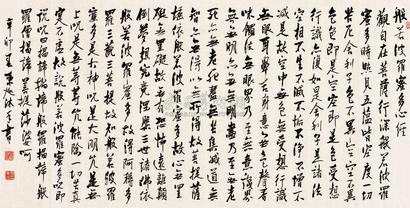 般若波羅蜜多心經
觀自在菩薩行深般若波羅
蜜多時照見五蘊皆空度一切
苦厄舍利子色不異空空不異
色色即是空空即是色受想
行識亦復如是舍利子是諸法
空相不生不滅不垢不淨不增不
減是故空中無色無受想行識
無眼耳鼻舌身意無色聲香
味觸法無眼界乃至無意識界
無無明亦無無明盡乃至無老
死亦無老死盡無苦集滅道無
智亦無得以無所得故菩提薩
埵依般若波羅蜜多故心無罣
礙無罣礙故無有恐怖遠離顛
倒夢想究竟涅槃三世諸佛依
般若波羅蜜多故得阿耨多
羅三藐三菩提故知般若波羅
蜜多是大神咒是大明咒是無
上咒是無等等咒能除一切苦真
實不虛故說般若波羅蜜多咒即
說咒曰揭諦揭諦般羅揭諦般
羅僧揭諦菩提薩婆訶
辛卯夏 書